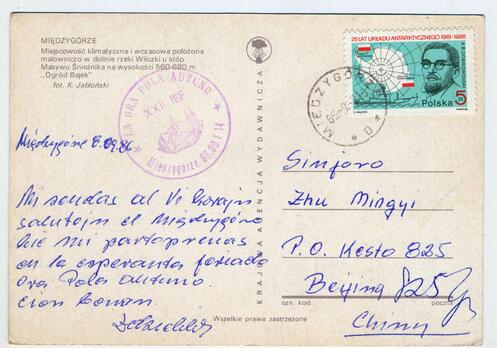 MIĘDZYGÓRZE
Miejscowość klimatyczna i wczasowa położona
malowniczo w dolinie rzeki Wilczki u stóp
Masywu Śnieżnika na wysokości 560-680 m.
„Ogród Bajek"
fot. K. Jabłoński
LA ORA POLA AUTUNO
XXII IEF
Międzygórze 86.09.1-14
25 LAT UKŁADU ANTARKTYCZNEGO 1961-1986
Polska 5 ZŁ
MIĘDZYGÓRZE
Międzygórze 8.09.86
Mi sendas al Vi korajn
salutojn el Międzygórze
kie mi partoprenas
en la esperanta
Ora Pola Aŭtuno.
KRAJOWA AGENCJA WYDAWNICZA
Sinjoro
Zhu Mingyi
P.O. Kesto 825
Beijing 825
ozn. kod poczta
Wszelkie prawa zastrzeżone